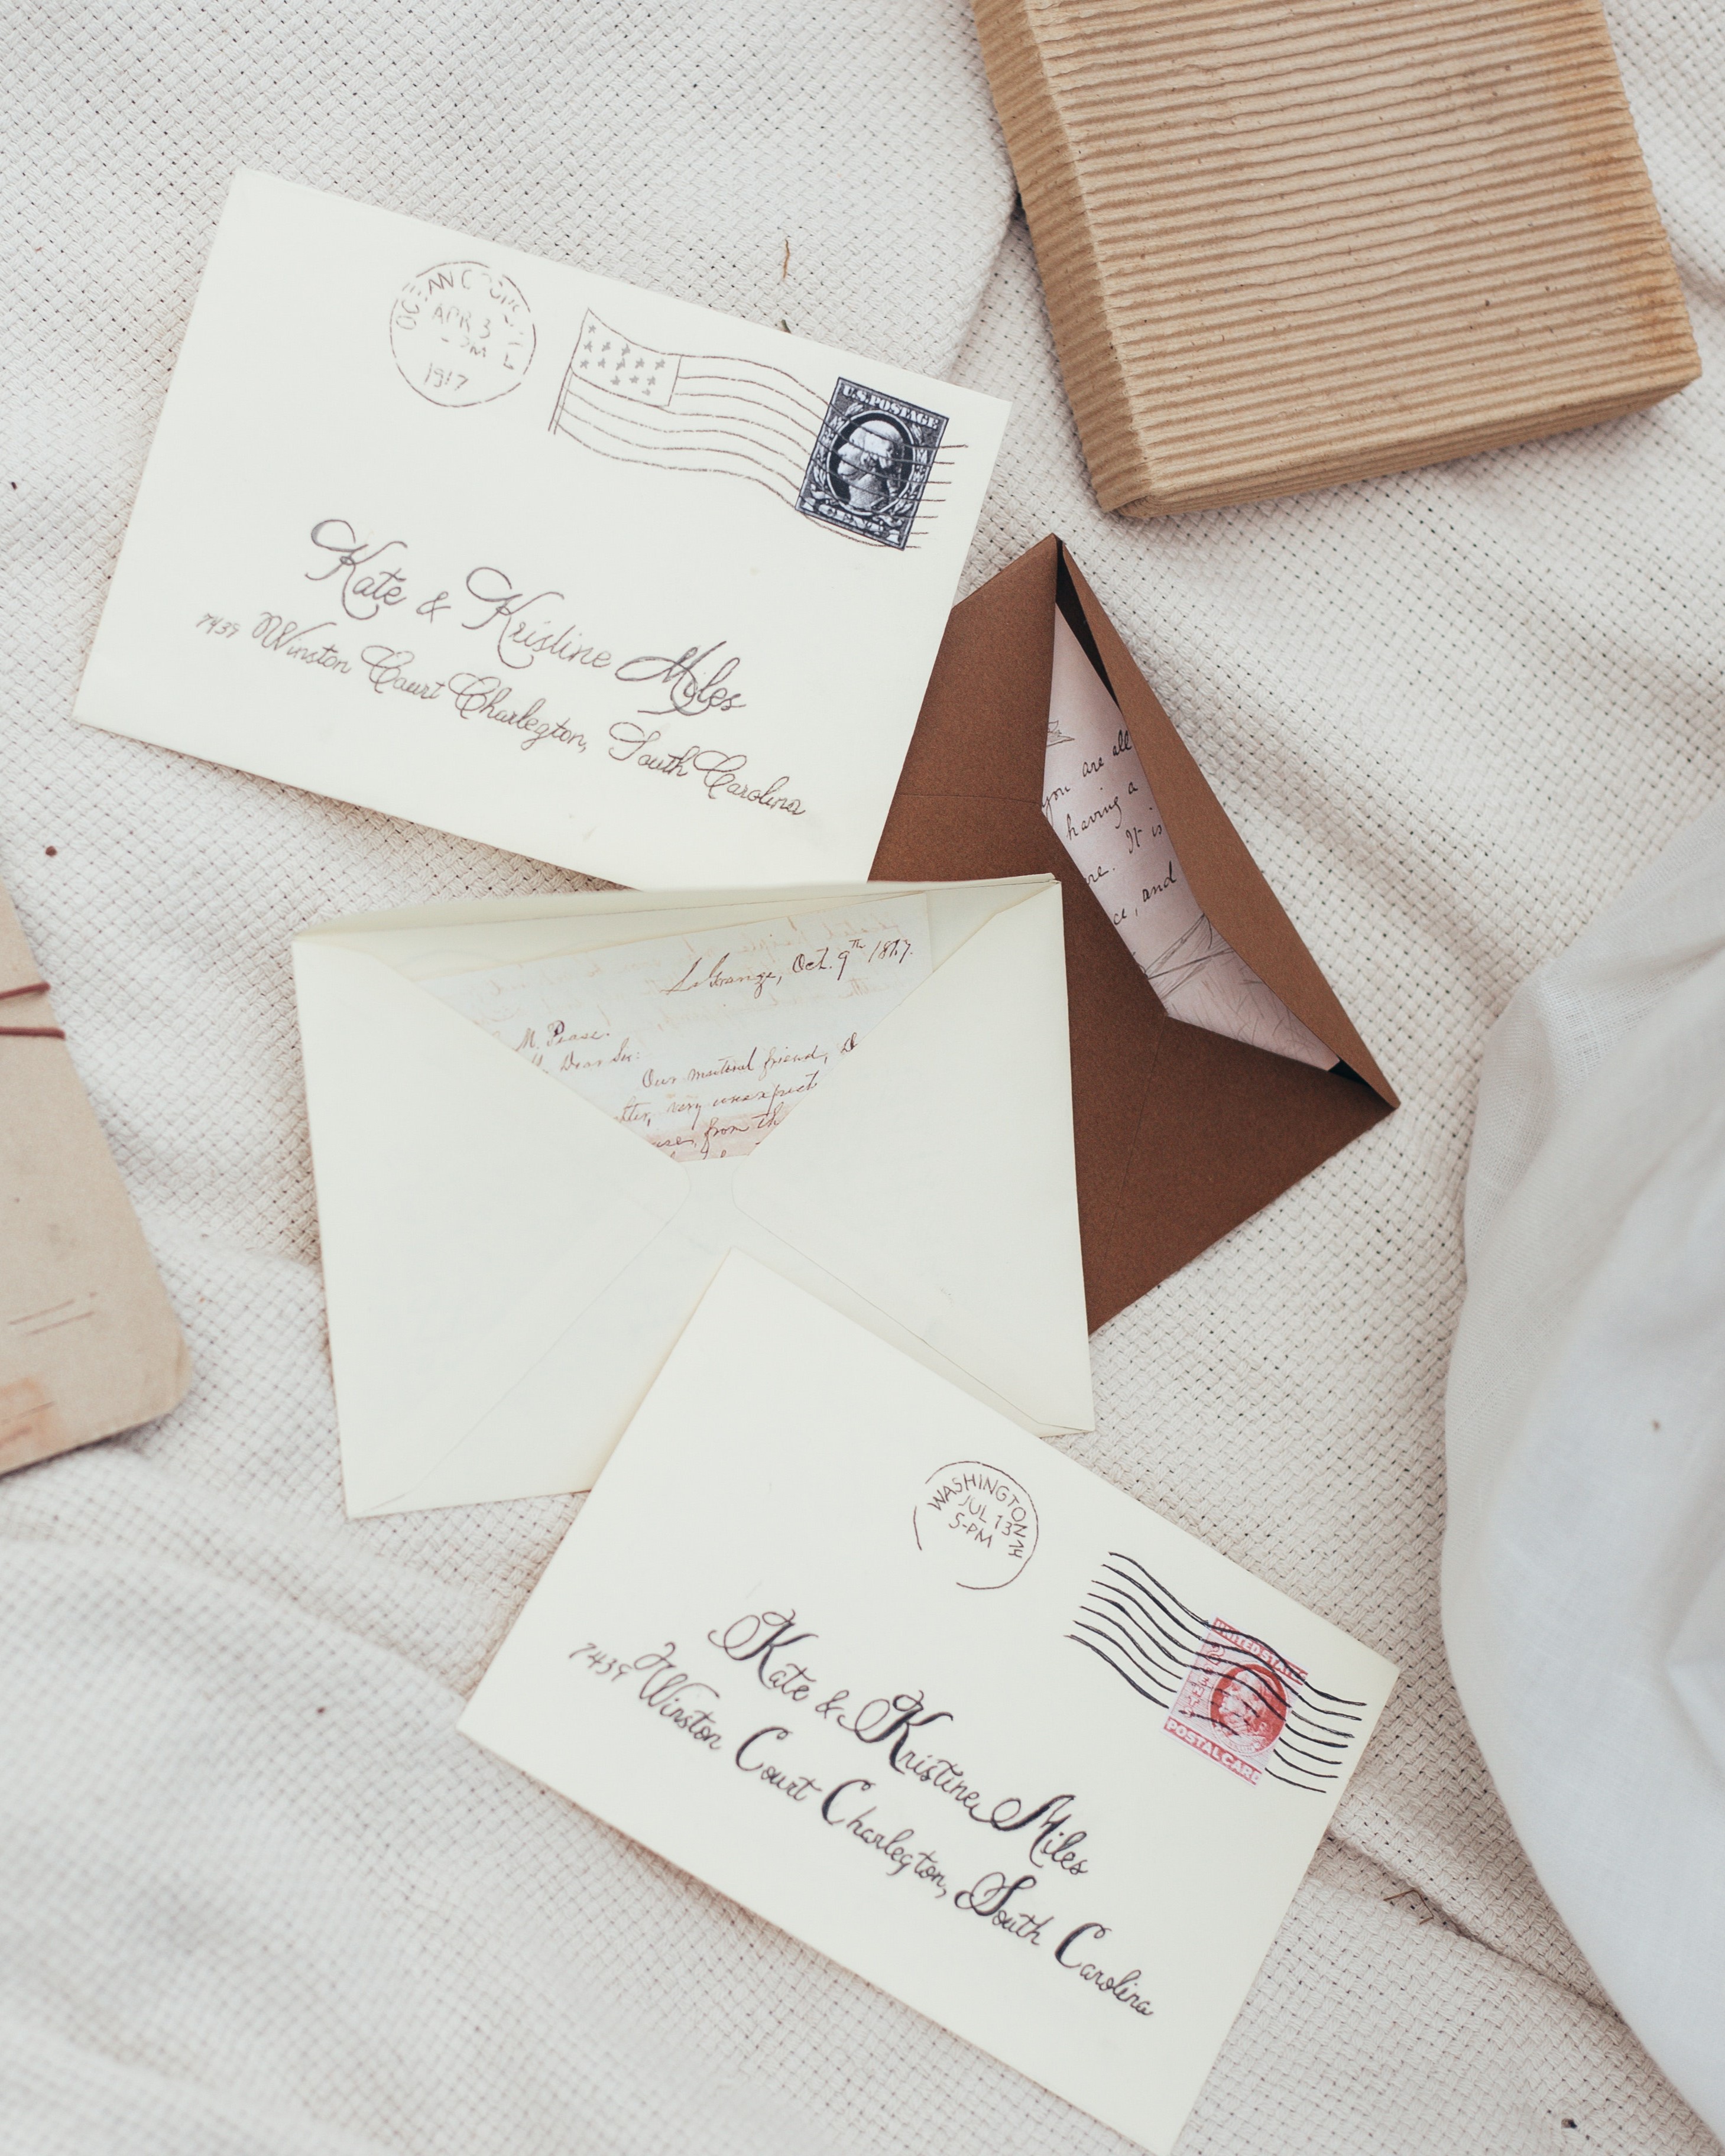 APR 3
PM
1917
U.S. POSTAGE
CENTS
Kate & Kristine Miles
7439 Winston Court Charlegton, South Carolina
you are all
having a
re. It is
ce, and
LaGrange, Oct. 9th
M. Pease.
Dear Sir:
Our mutual friend, D
very unexpect
from th
WASHINGTON
JUL 13
5-PM
UNITED STATES
POSTAL CARD
Kate & Kristine Miles
7439 Winston Court Charlegton, South Carolina